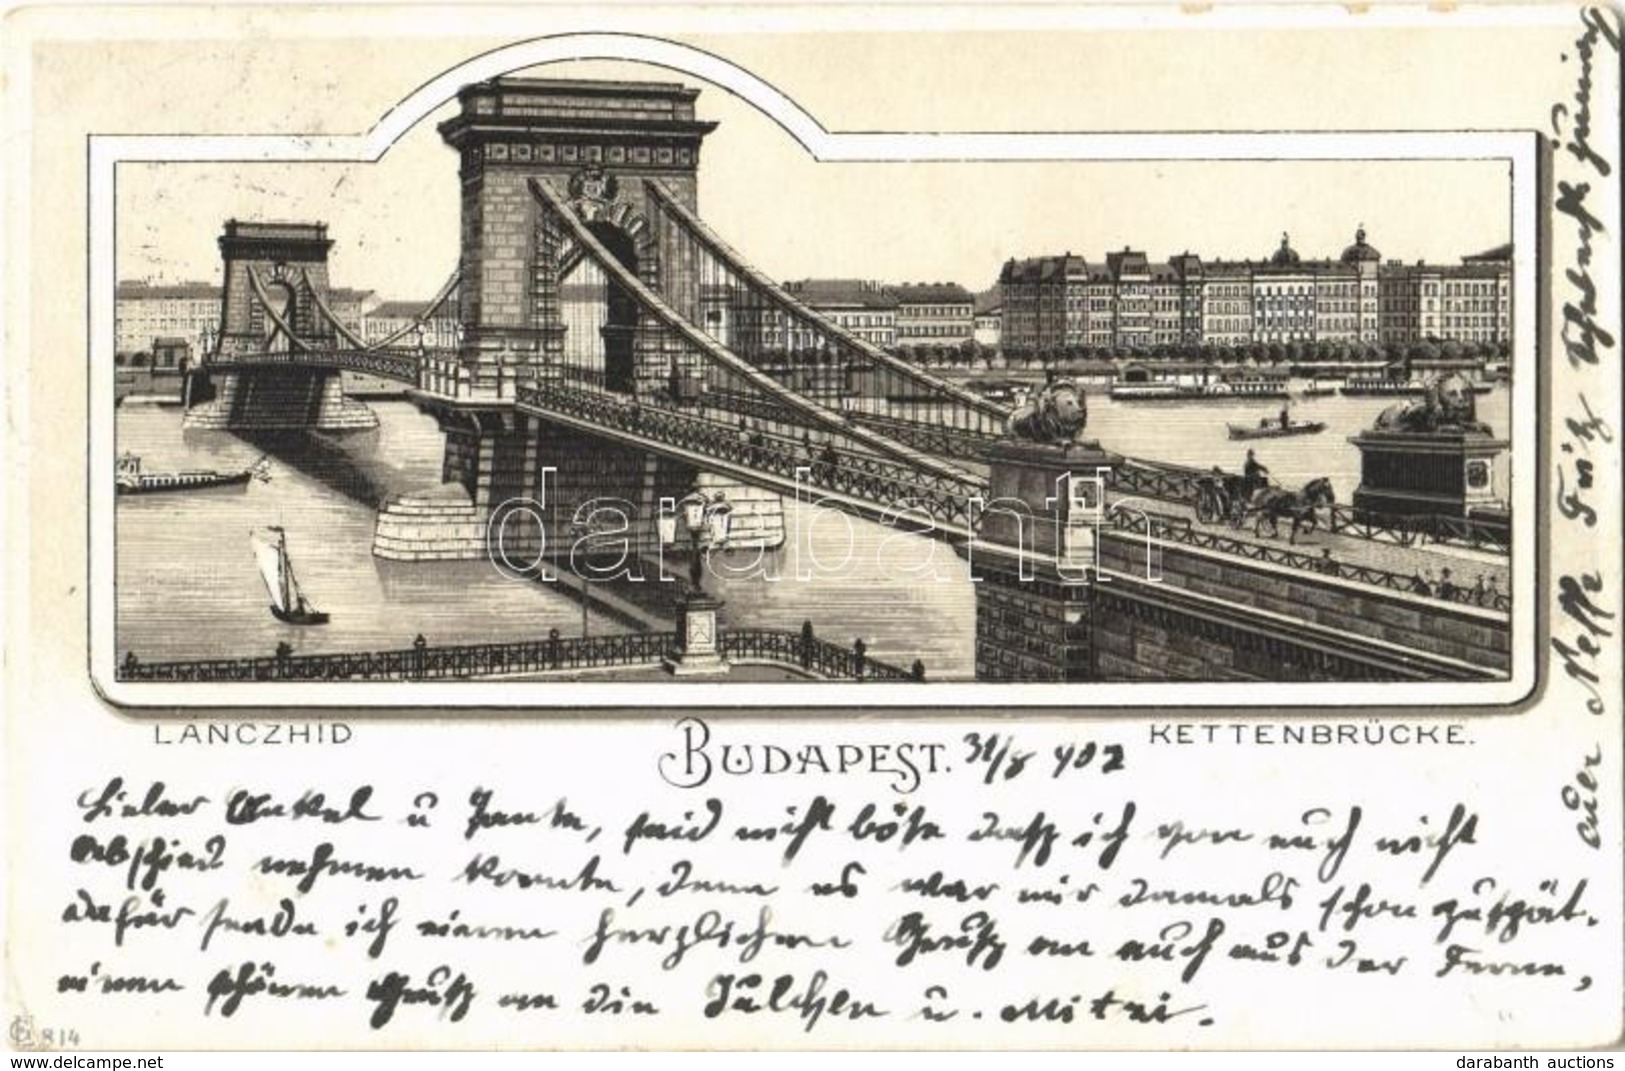 LÁNCZHÍD
BUDAPEST. 31/8 902
KETTENBRÜCKE.
Lieber Onkel u Tante, seid nicht böse dass ich von euch nicht
Abschied nehmen konnte, denn es war mir damals schon zuspät.
dafür sende ich einen herzlichen Gruss an euch aus der Ferne,
einen schönen Gruss an die Julchen u. Mitzi.
euer Neffe Fritz
814
darabanth
delcampe.net
darabanth auctions